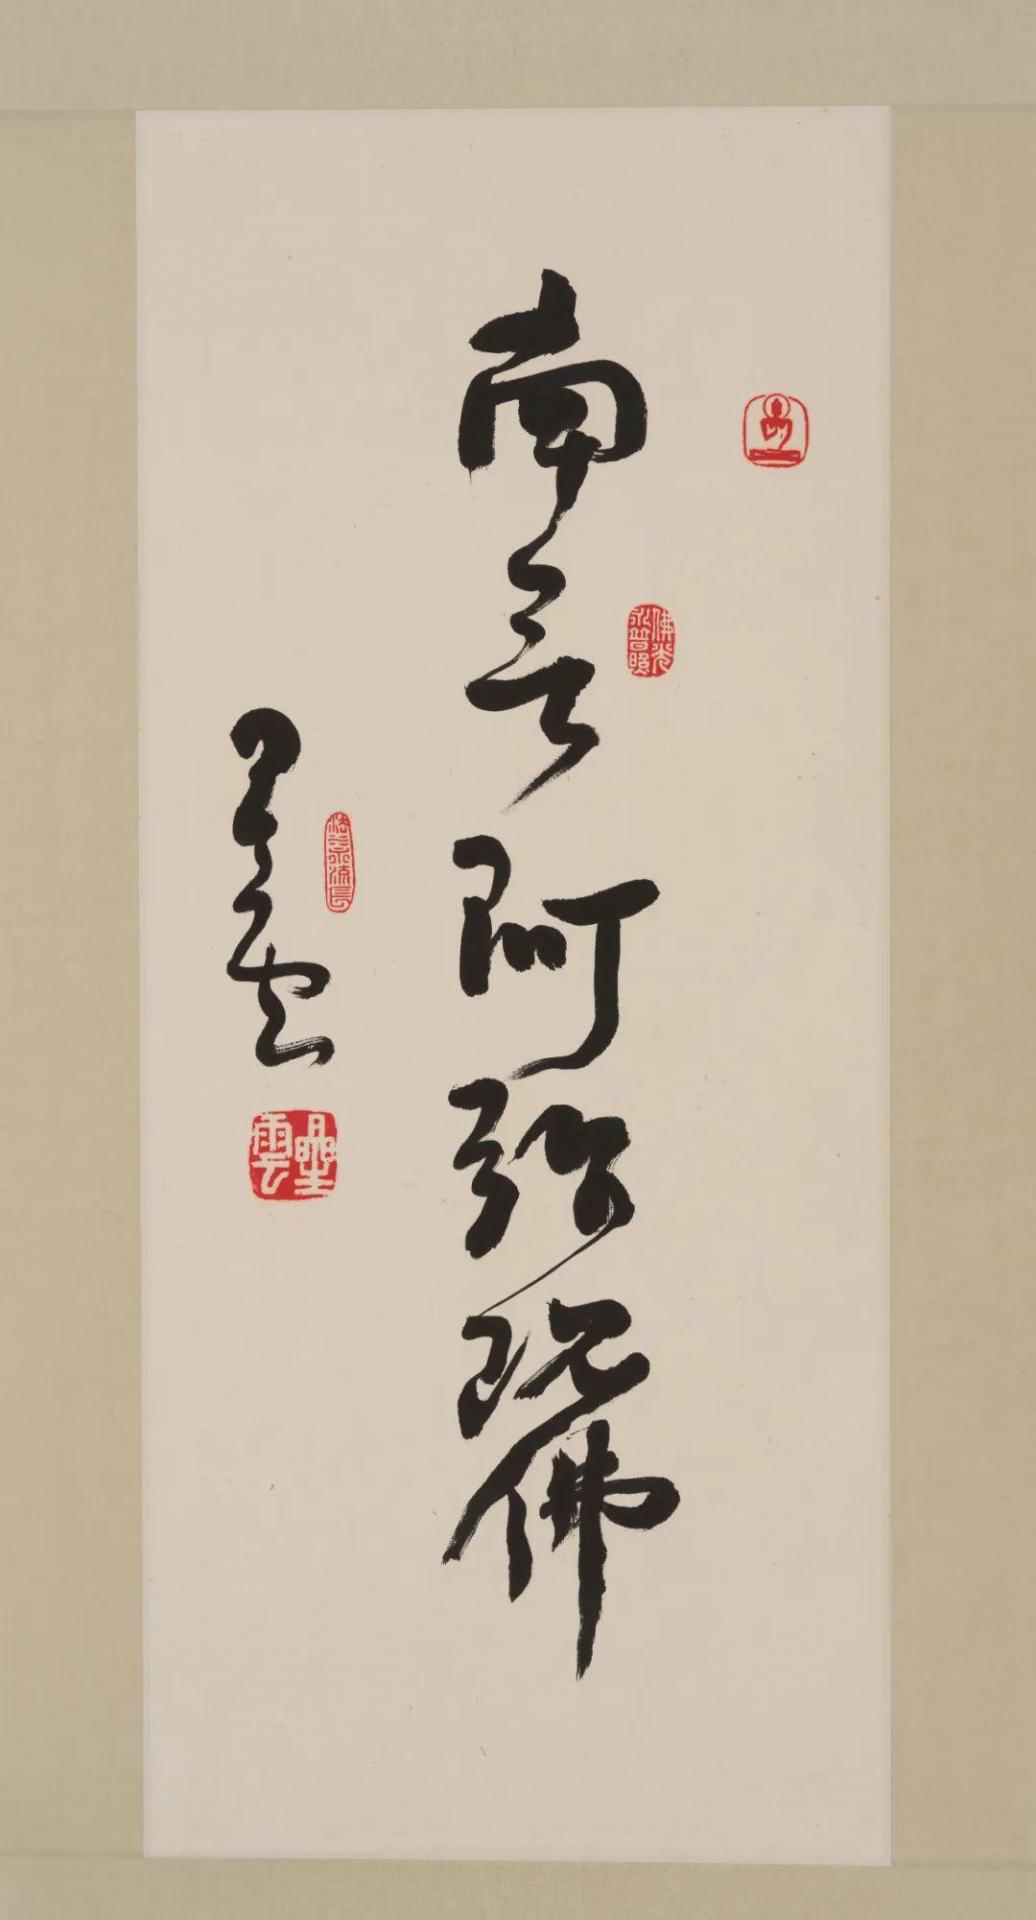 南无阿弥陀佛
佛光
永普照
星云
星雲